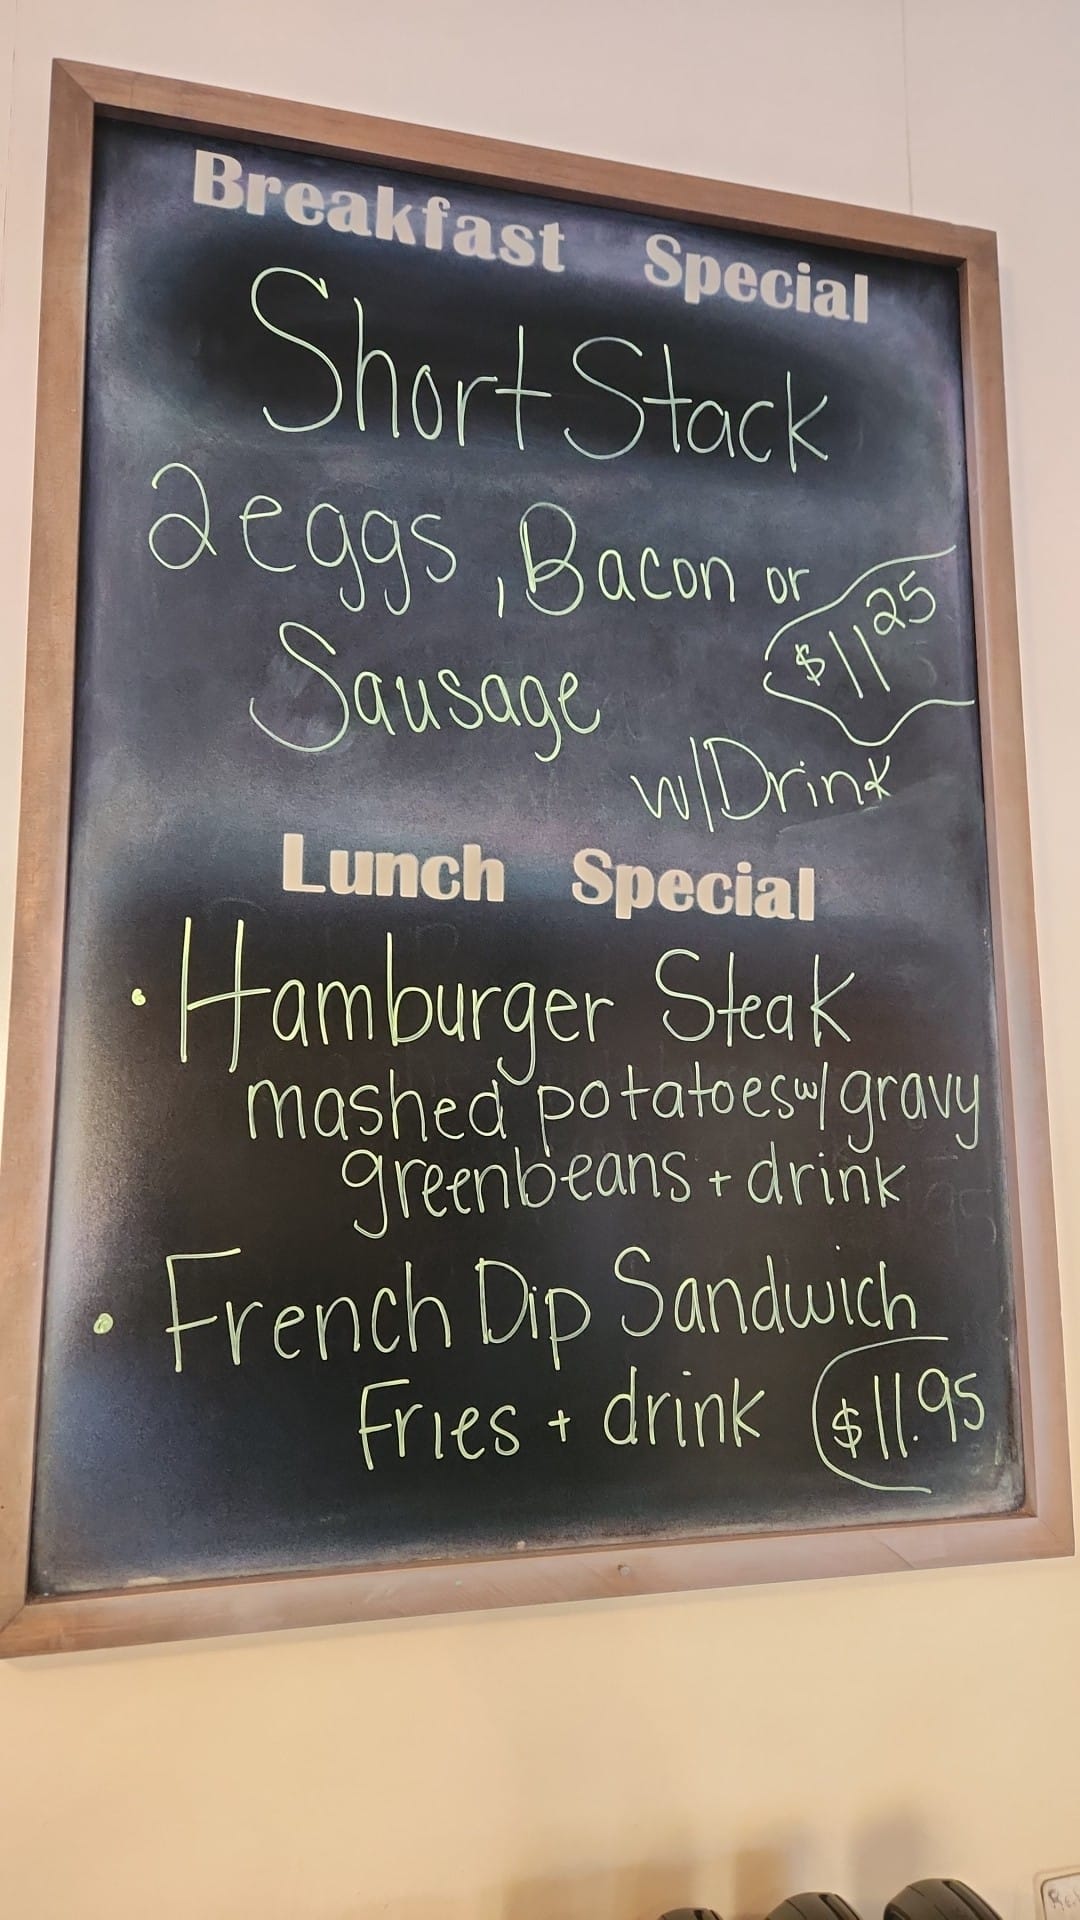 Breakfast Special
Short Stack
2 eggs, Bacon or
Sausage
$11 25
w/Drink
Lunch Special
• Hamburger Steak
mashed potatoes w/ gravy
greenbeans + drink
• French Dip Sandwich
Fries + drink $11.95